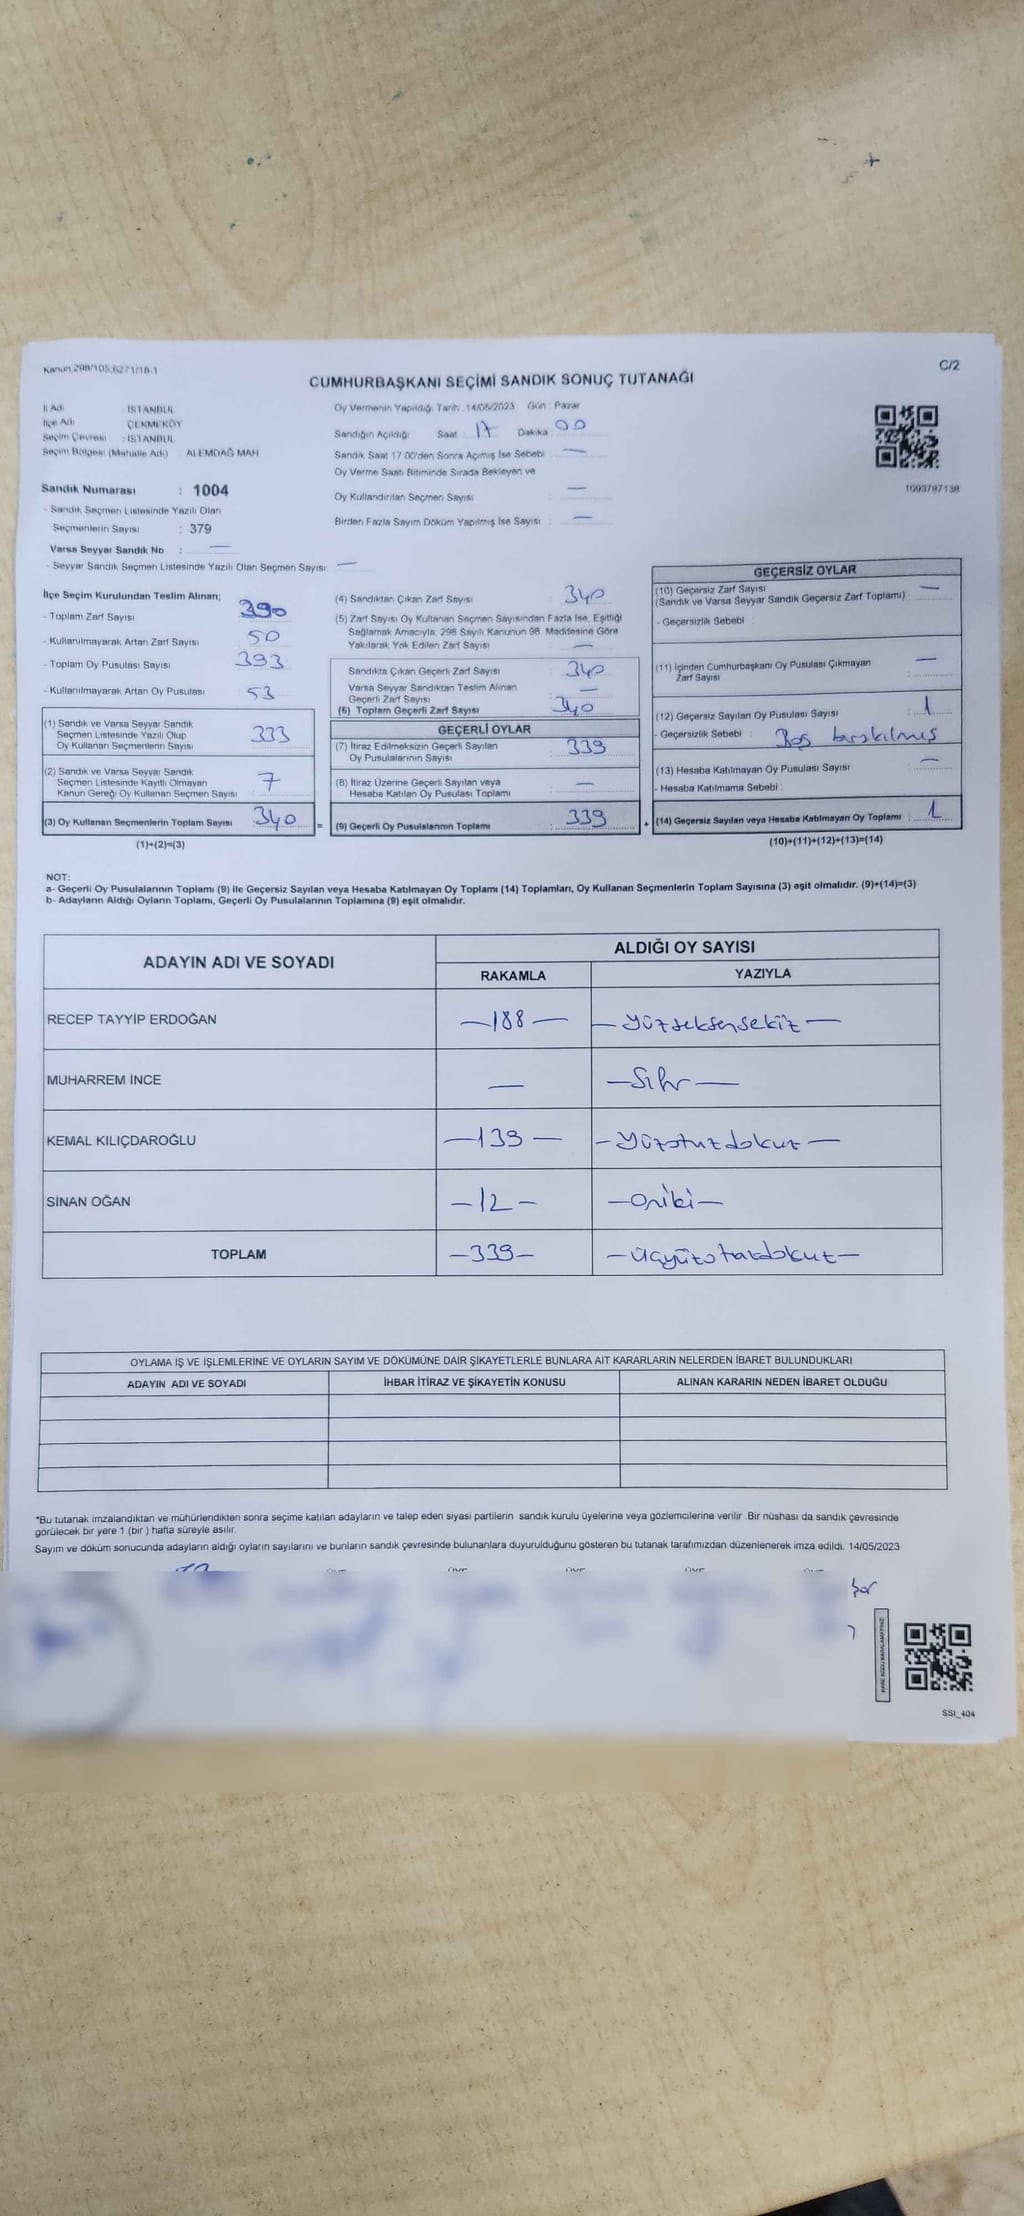 Kanun:298/105,6271/18-1
C/2
CUMHURBAŞKANI SEÇİMİ SANDIK SONUÇ TUTANAĞI
İl Adı İSTANBUL
İlçe Adı ÇEKMEKÖY
Seçim Çevresi : İSTANBUL
Seçim Bölgesi (Mahalle Adı) : ALEMDAĞ MAH
Sandık Numarası : 1004
- Sandık Seçmen Listesinde Yazılı Olan
Seçmenlerin Sayısı : 379
Varsa Seyyar Sandık No : —
- Seyyar Sandık Seçmen Listesinde Yazılı Olan Seçmen Sayısı: —
Oy Vermenin Yapıldığı Tarih : 14/05/2023 Gün : Pazar
Sandığın Açıldığı Saat 17 Dakika : 00
Sandık Saat 17:00'den Sonra Açımış İse Sebebi : —
Oy Verme Saati Bitiminde Sırada Bekleyen ve
Oy Kullandırılan Seçmen Sayısı : —
Birden Fazla Sayım Döküm Yapılmış İse Sayısı : —
1093787138
İlçe Seçim Kurulundan Teslim Alınan;
- Toplam Zarf Sayısı 390
- Kullanılmayarak Artan Zarf Sayısı 50
- Toplam Oy Pusulası Sayısı 393
- Kullanılmayarak Artan Oy Pusulası 53
(1) Sandık ve Varsa Seyyar Sandık
Seçmen Listesinde Yazılı Olup
Oy Kullanan Seçmenlerin Sayısı 333
(2) Sandık ve Varsa Seyyar Sandık
Seçmen Listesinde Kayıtlı Olmayan
Kanun Gereği Oy Kullanan Seçmen Sayısı 7
(3) Oy Kullanan Seçmenlerin Toplam Sayısı 340 =
(1)+(2)=(3)
(4) Sandıktan Çıkan Zarf Sayısı 340
(5) Zarf Sayısı Oy Kullanan Seçmen Sayısından Fazla İse, Eşitliği
Sağlamak Amacıyla, 298 Sayılı Kanunun 98. Maddesine Göre
Yakılarak Yok Edilen Zarf Sayısı —
Sandıkta Çıkan Geçerli Zarf Sayısı 340
Varsa Seyyar Sandıktan Teslim Alınan
Geçerli Zarf Sayısı —
(6) Toplam Geçerli Zarf Sayısı 340
GEÇERLİ OYLAR
(7) İtiraz Edilmeksizin Geçerli Sayılan
Oy Pusulalarının Sayısı : 339
(8) İtiraz Üzerine Geçerli Sayılan veya
Hesaba Katılan Oy Pusulası Toplamı : —
(9) Geçerli Oy Pusulalarının Toplamı : 339 +
GEÇERSİZ OYLAR
(10) Geçersiz Zarf Sayısı
(Sandık ve Varsa Seyyar Sandık Geçersiz Zarf Toplamı) : —
- Geçersizlik Sebebi :
(11) İçinden Cumhurbaşkanı Oy Pusulası Çıkmayan
Zarf Sayısı —
(12) Geçersiz Sayılan Oy Pusulası Sayısı : 1
- Geçersizlik Sebebi : Boş bırakılmış
(13) Hesaba Katılmayan Oy Pusulası Sayısı : —
- Hesaba Katılmama Sebebi :
(14) Geçersiz Sayılan veya Hesaba Katılmayan Oy Toplamı : 1
(10)+(11)+(12)+(13)=(14)
NOT:
a- Geçerli Oy Pusulalarının Toplamı (9) ile Geçersiz Sayılan veya Hesaba Katılmayan Oy Toplamı (14) Toplamları, Oy Kullanan Seçmenlerin Toplam Sayısına (3) eşit olmalıdır. (9)+(14)=(3)
b- Adayların Aldığı Oyların Toplamı, Geçerli Oy Pusulalarının Toplamına (9) eşit olmalıdır.
ADAYIN ADI VE SOYADI
ALDIĞI OY SAYISI
RAKAMLA YAZIYLA
RECEP TAYYİP ERDOĞAN —188— —Yüzseksensekiz—
MUHARREM İNCE — —Sıfır—
KEMAL KILIÇDAROĞLU —139— —Yüzotuzdokuz—
SİNAN OĞAN —12— —Oniki—
TOPLAM —339— —Üçyüzotuzdokuz—
OYLAMA İŞ VE İŞLEMLERİNE VE OYLARIN SAYIM VE DÖKÜMÜNE DAİR ŞİKAYETLERLE BUNLARA AİT KARARLARIN NELERDEN İBARET BULUNDUKLARI
ADAYIN ADI VE SOYADI İHBAR İTİRAZ VE ŞİKAYETİN KONUSU ALINAN KARARIN NEDEN İBARET OLDUĞU
*Bu tutanak imzalandıktan ve mühürlendikten sonra seçime katılan adayların ve talep eden siyasi partilerin sandık kurulu üyelerine veya gözlemcilerine verilir .Bir nüshası da sandık çevresinde
görülecek bir yere 1 (bir ) hafta süreyle asılır.
Sayım ve döküm sonucunda adayların aldığı oyların sayılarını ve bunların sandık çevresinde bulunanlara duyurulduğunu gösteren bu tutanak tarafımızdan düzenlenerek imza edildi. 14/05/2023
SSI_404